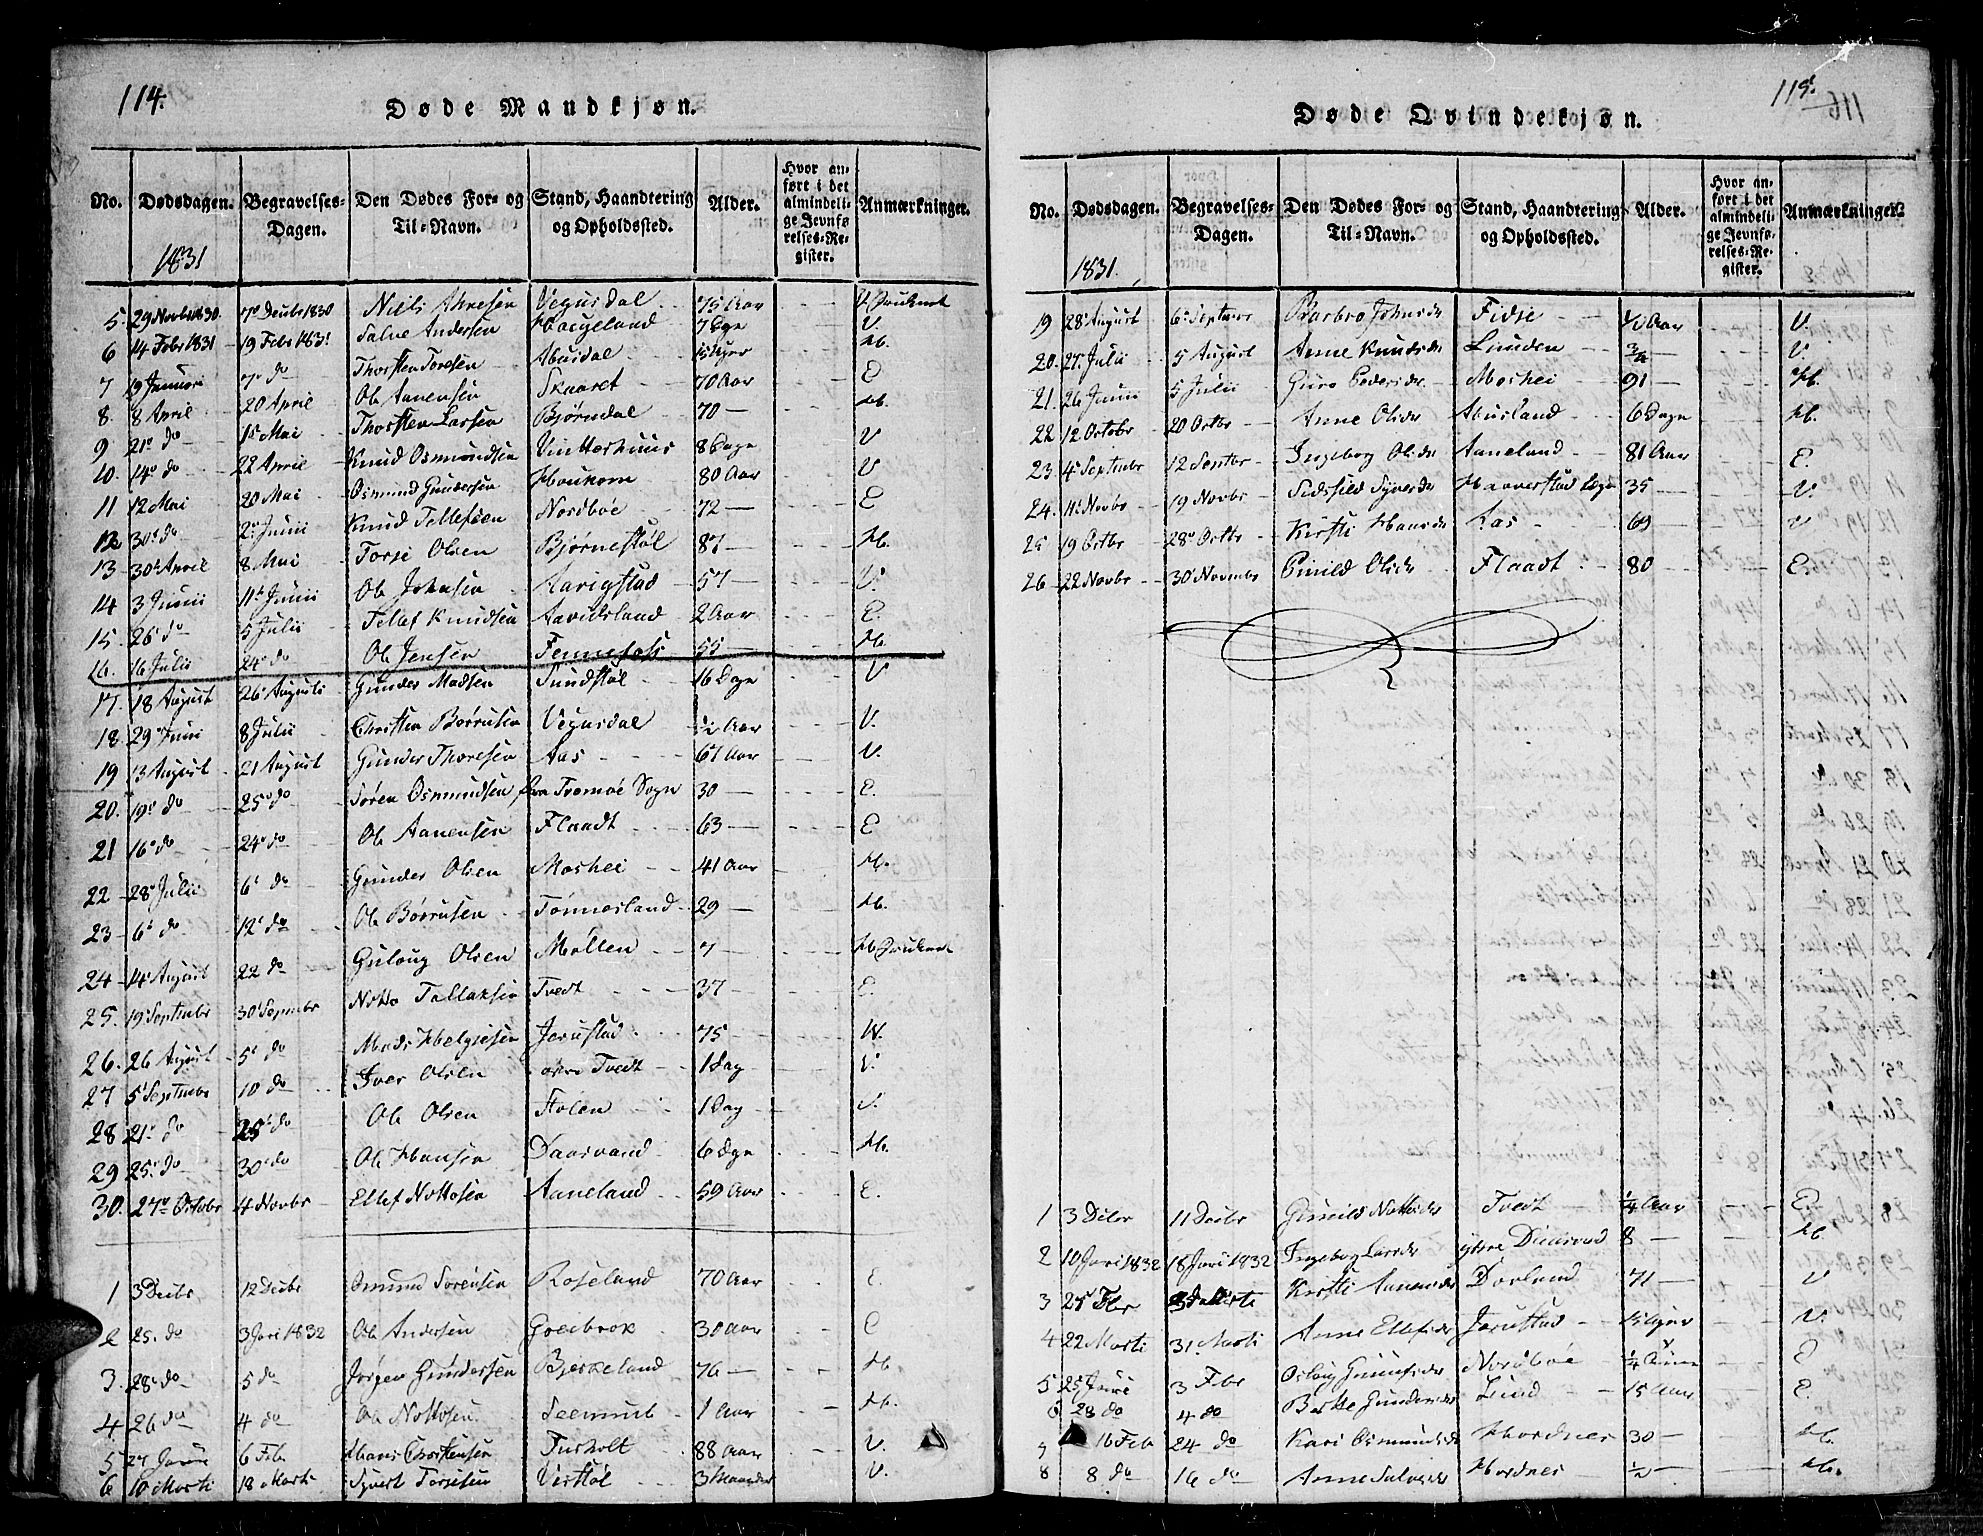 114.
Døde Mandkjøn.
No. Dødsdagen. Begravelses-Dagen. Den Dødes For- og Til-Navn. Stand, Haandtering og Opholdssted. Alder. Hvor anført i det almindelige Jevnførelses-Register. Anmærkninger.
1831
5. 29 Novbr 1830 7de Decbr 1830 Niels Ahresen Vegusdal 75 Aar V.
6 14 Febr 1831 19 Febr 1831 Salve Andersen Høegeland 7 Dgn V.
7 19 Januari 7de do Thorsten Toresen Abusdal 15 Uger H.
8. 8 April 20 April Ole Aanensen Skaaret 70 Aar E
9 21de do 1ste Mai Thorsten Larsen Bjørndal 70 — H.
10. 14de do 22 April Knud Osmundsen Vintterhuus 8 Dage V
11 12 Mai 20 Mai Osmund Gundersen Houkom 80 Aar V
12 30te do 2den Junii Knud Tellefsen Nordbøe 72 — E
13 30te April 8 Mai Torje Olsen Bjørnestøl 87 — H.
14 3 Junii 11te Junii Ole Johnsen Aarigstad 57 — V.
15. 26 do 5 Julii Tellef Knudsen Aavidsland 2 Aar E.
16. 16 Julii 24de do Ole Jensen Fennefoss 55 — H
17. 18 August 26 Augusti Gunder Madsen Sundstøl 16 Dage V
18. 29 Juni 8 Julii Christen Børrusen Vegusdal ½ Aar V.
19 13 August 21 August Gunder Thoresen Aas 67 Aar V.
20. 19de do 25de do Søren Osmundsen fra Tromøe Sogn 30 — E.
21 16de do 24de do Ole Aanensen Flaadt 63 — E
22 28de Julii 6te do Gunder Olsen Moshei 41 Aar H.
23 6te do 12te do Ole Børrusen Tønnesland 29 — H.
24 14de August 22 do Guloug Olsen Møllen 7 — H
25. 19de Septembr 30te Sepembr Notto Tallaksen Tvedt 37 — E.
26. 26 August 5te do Mads Helgiesen Jerustad 75 — H.
27 5te Septembr 10 do Iver Olsen øvre Tvedt 1 Dag V.
28 21de do 25de do Ole Olsen Stolen 1 Dag V.
29 25de do 30te do Ole Hansen Daasvand 6 Dgn H.
30. 27de Octobr 4 Novbr Ellef Nottosen Aaneland 59 Aar E.
1 3 Decbr 12 Decbr Osmund Sørensen Roseland 70 Aar E.
2 25. do 3 Jari 1832 Ole Andersen Greibrok 30 Aar E
3. 28de do 5 do Jørgen Gundersen Bjerkeland 76 — H
4 26 do 4 do Ole Nottosen 1 Aar H.
5 27 Janri 6 Feb Hans Christensen Turholt 88 Aar V.
6 10 Marti 18 Marti Syvert Torjesen Verstøl 3 Maaneder V.
115.
116
Døde Qvindekjøn.
No. Dødsdagen. Begravelses-Dagen. Den Dødes For- og Til-Navn. Stand, Haandtering og Opholdssted. Alder. Hvor anført i det almindelige Jevnførelses-Register. Anmærkninger.
1831.
19 28 August 6te Septembr Barbro Johnsdr Fidje ½ Aar V.
20. 27. Julii 5 August Anne Knudsdr Lunden ¾ — V.
21. 26 Junii 5 Julii Guro Pedersdr Moshei 91 — H.
22 12 Octobr 20 Octbr Anne Olsdr Abusland 6 Dage H.
23 4de Septembr 12 Septbr Ingeborg Olsdr Aaneland 81 Aar E.
24. 11te Novbr 19 Novbr Sidsild Syversdr Haaverstad Sogn 35 — V.
25 19 Octbr 28de Octbr Kirsti Hansdr Aas 69 V
26 22 Novbr 30te Novmbr Gunild Olsdr Flaadt 80 E.
1 3 Decbr 11 Decbr Gunild Nottosdr Tvedt ¼ Aar E.
2 10 Jari 1832 18 Jari 1832 Ingeborg Larsdr ytre Daasvand 8 — H.
3 25 Febr Marti Kirsti Aanensdr Dovland 71 — V
4 22 Marti 31. Marti Anne Ellefsdr Jerustad 15 Uger V.
5 25 Janri 3 Febr Aslaug Gunufsdr Nordbøe ¼ E
6 28 do 4 do Berthe Gundersdr Lund 15 Aar E.
7 16 Feb 24 do Kari Osmundsdr Hordnes 30 — H.
8 8 do 16 do Anne Salvesdr Hordnes ½ — H.